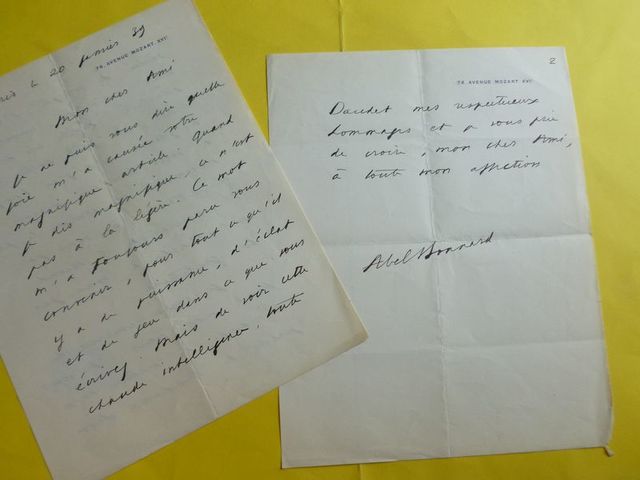 Paris le 20 janvier 39
76, AVENUE MOZART. XVIᵉ
Mon cher Ami
Je ne puis vous dire quelle
joie m'a causée votre
magnifique article. Quand
je dis magnifique, ce n'est
pas à la légère. Ce mot
m'a toujours paru vous
convenir, pour tout ce qu'il
y a de puissance, d'éclat
et de feu dans ce que vous
écrivez. Mais de voir cette
chaude intelligence, toute
2
76, AVENUE MOZART. XVIᵉ
Daudet mes respectueux
hommages et je vous prie
de croire, mon cher Ami,
à toute mon affection
Abel Bonnard